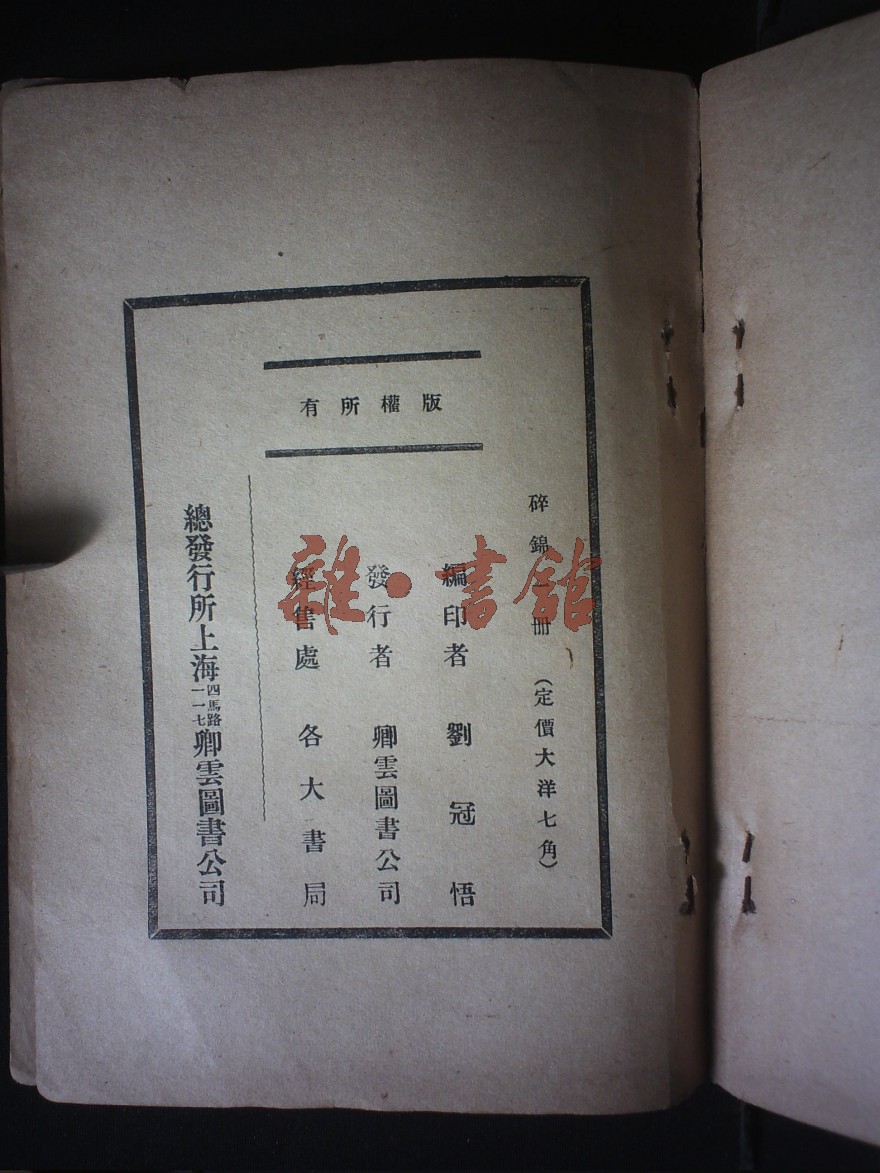 版權所有
碎錦 冊 (定價大洋七角)
編印者 劉冠悟
發行者 卿雲圖書公司
經售處 各大書局
總發行所上海四馬路一一七卿雲圖書公司
雜·書館